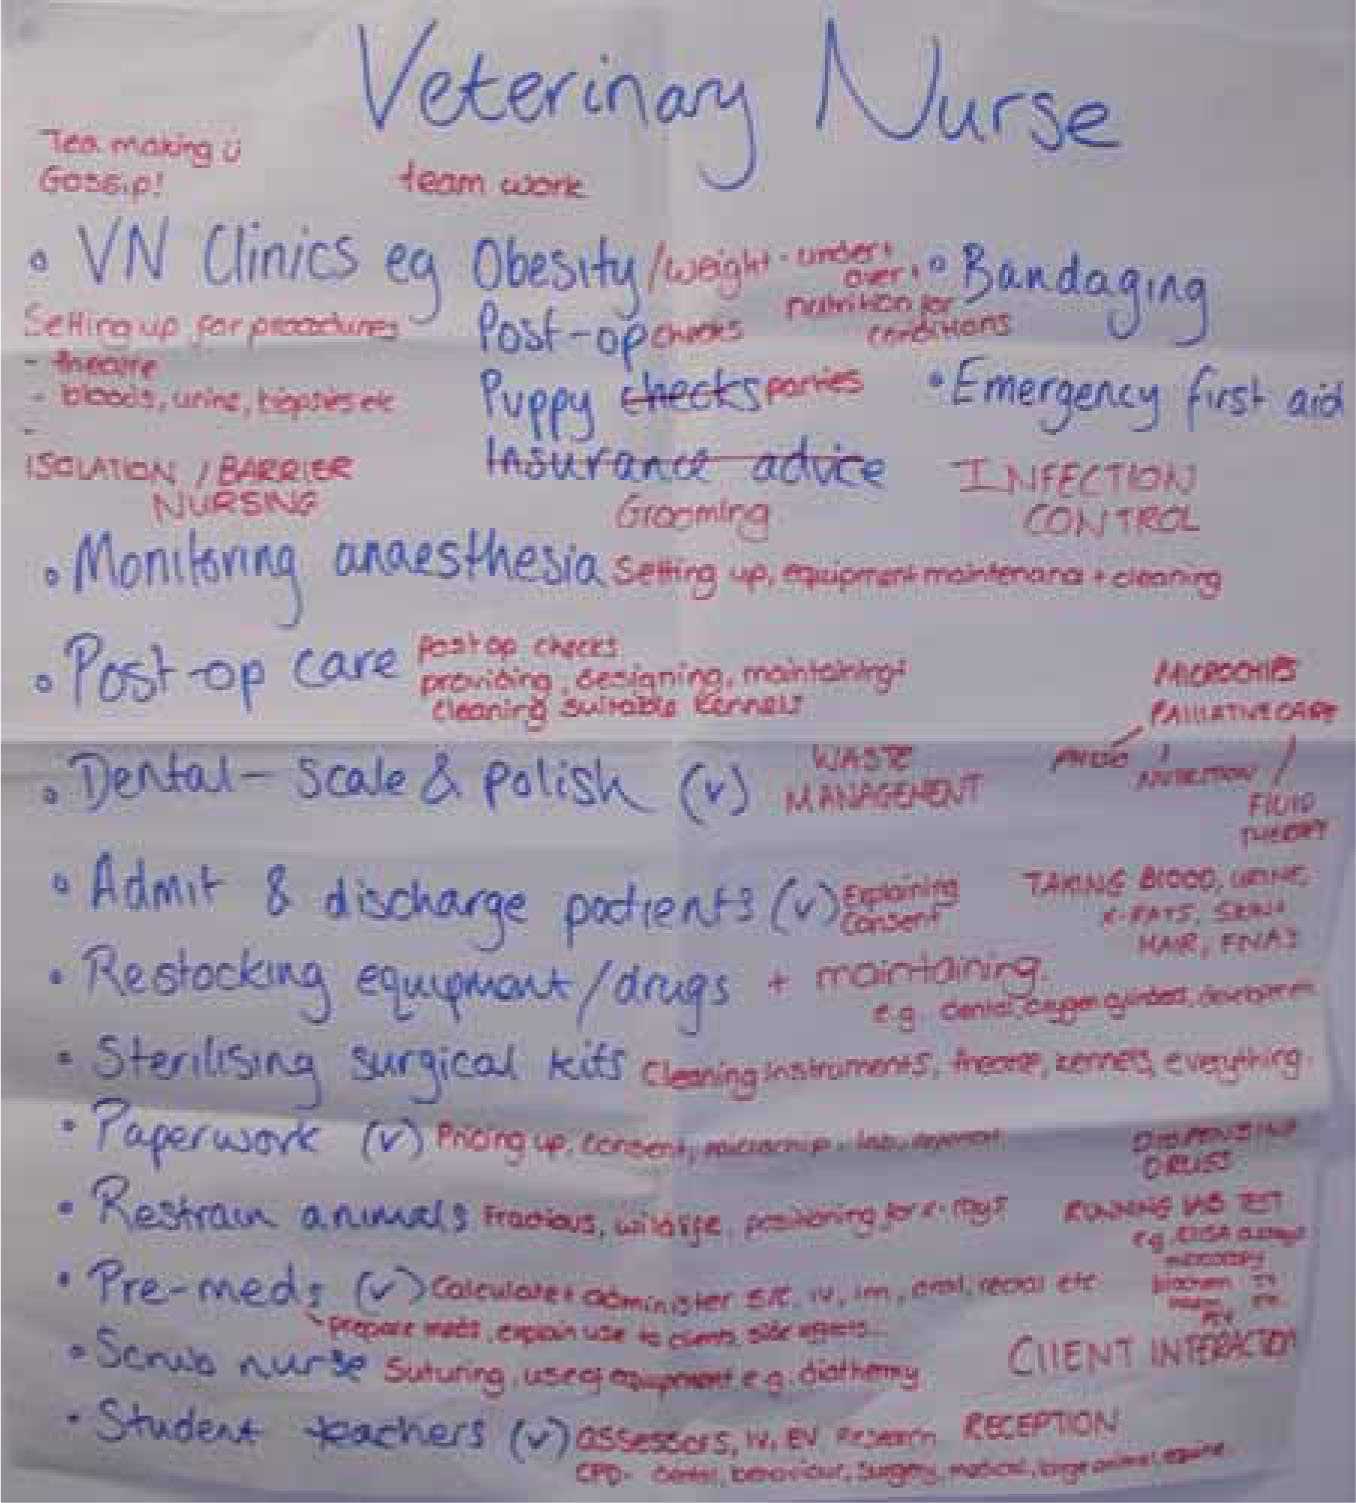 Veterinary Nurse
Tea making ü
Gossip!
team work
• VN Clinics eg Obesity/weight - under+
over+
nutrition for
conditions
• Bandaging
Setting up for procedures
- theatre
- bloods, urine, biopsies etc
-
Post-op checks
Puppy checks parties
• Emergency first aid
Insurance advice
ISOLATION / BARRIER
NURSING
Grooming
INFECTION
CONTROL
• Monitoring anaesthesia Setting up, equipment maintenance + cleaning
• Post-op care post op checks
providing, designing, maintaining+
cleaning suitable kennels
MICROCHIPS
PALLIATIVE CARE
PHYSIO
NUTRITION
FLUID
THERAPY
• Dental - scale & polish (v)
WASTE
MANAGEMENT
• Admit & discharge patients (v) Explaining
Consent
TAKING BLOOD, URINE
X-RAYS, SKIN+
HAIR, FNAS
• Restocking equipment/drugs + maintaining.
e.g. dental, oxygen cylinders,
• Sterilising surgical kits Cleaning instruments, theatre, kennels, everything.
• Paperwork (v) Pricing up, consent, microchip, lab,
DISPENSING
DRUGS
• Restrain animals Fractious, wildlife, positioning for x-rays
RUNNING LAB TEST
e.g. ELISA
microscopy
biochem
• Pre-meds (v) Calculate+ administer S/C, IV, IM, oral, rectal etc
prepare meds, explain use to clients, side effects...
• Scrub nurse Suturing, use of equipment e.g. diathermy
CLIENT INTERACTION
• Student teachers (v) assessors, IV, EV Research
RECEPTION
CPD- dental, behaviour, surgery, medical, large animal, equine